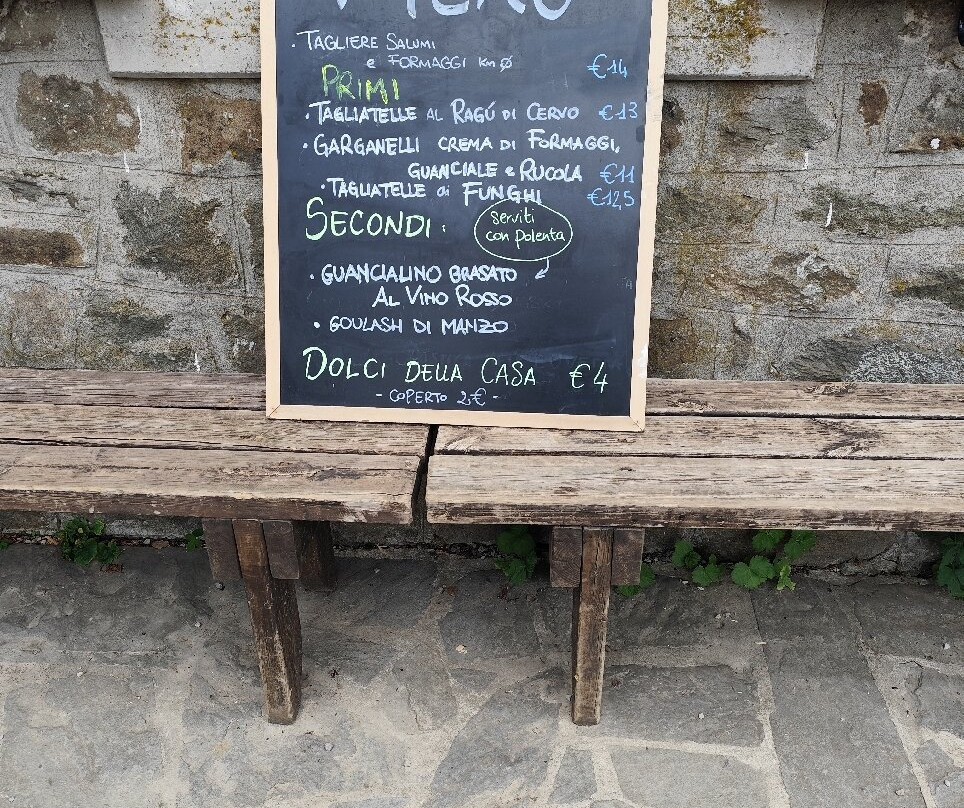 MENU
· TAGLIERE SALUMI
e FORMAGGI Km Ø €14
PRIMI
· TAGLIATELLE AL RAGÚ DI CERVO €13
· GARGANELLI CREMA DI FORMAGGI,
GUANCIALE e RUCOLA €11
· TAGLIATELLE ai FUNGHI €12,5
SECONDI :
Serviti
con polenta
· GUANCIALINO BRASATO
AL VINO ROSSO
· GOULASH DI MANZO
DOLCI DELLA CASA €4
- COPERTO 2€ -